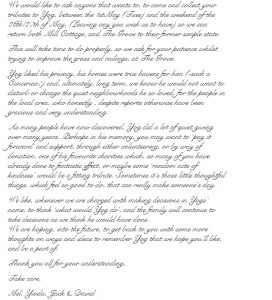 We would like to ask anyone that wants to, to come and collect your
tributes to Yog, between the 1st May (Tues) and the weekend of the
26th/27th of May, (Leaving any you want us to have), so we can
return both Mill Cottage, and The Grove to their former simple state.
This will take time to do properly, so we ask for your patience whilst
trying to improve the grass and railings, at The Grove.
Yog liked his privacy, his homes were true havens for him (such a
Cancerian!) and, ultimately, long term, we know he would not want to
disturb or change the quiet neighbourhoods he so loved, for the people in
the local area, who honestly, despite reports otherwise have been
gracious and very understanding.
As many people have now discovered, Yog did a lot of quiet giving
over many years. Perhaps in his memory, you may want to 'pay it
forward' and support, through either volunteering, or by way of
donation, one of his favourite charities which, so many of you have
already done to fantastic effect, or maybe some 'random acts of
kindness' would be a fitting tribute. Sometimes it's those little thoughtful
things, which feel so good to do, that can really make someone's day.
We like, whenever we are charged with making decisions in Yogs
name, to think 'what would Yog do', and the family will continue to
take decisions as we think he would have done.
We are hoping, into the future, to get back to you with some more
thoughts on ways and ideas to remember Yog that we hope you'll like,
and be a part of.
Thank you all for your understanding.
Take care,
Mel, Yioda, Jack & David